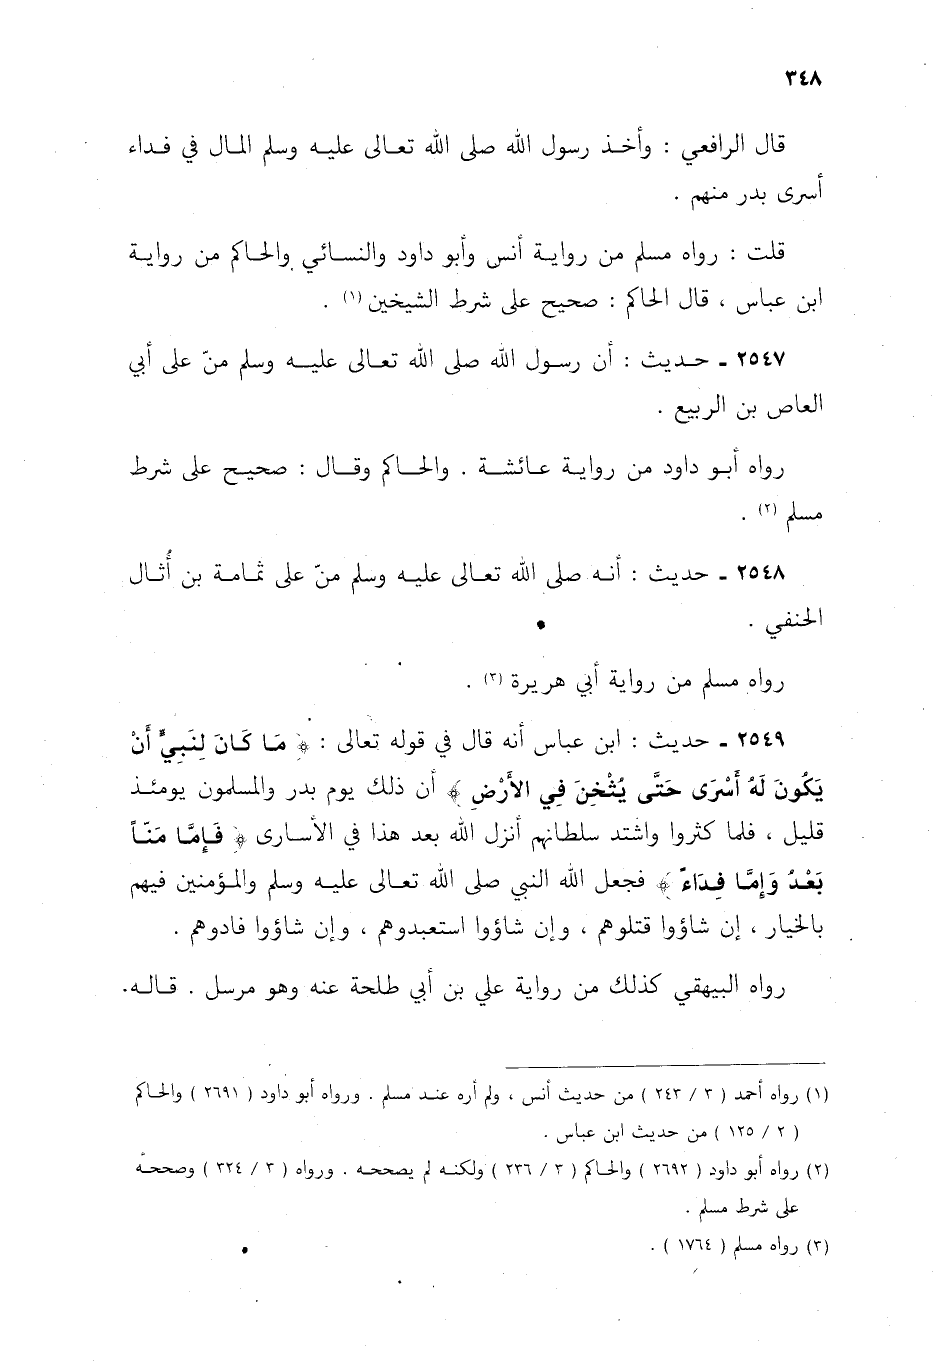 ٣٤٨
قال الرافعي : وأخـذ رسول الله صلى الله تعـالى عليـه وسلم المـال في فـداء
أسرى بدر منهم .
قلت : رواه مسلم من روايـة أنس وأبو داود والنسـائي والحـاكم من روايـة
ابن عباس ، قال الحاكم : صحيح على شرط الشيخين (١) .
٢٥٤٧ ـ حـديث : أن رسـول الله صلى الله تعـالى عليـه وسلم منّ على أبي
العاص بن الربيع .
رواه أبـو داود من روايـة عـائشـة . والحـاكم وقـال : صحيـح على شرط
مسلم (٢) .
٢٥٤٨ ـ حديث : أنـه صلى الله تعـالى عليـه وسلم منّ على ثمـامـة بن أُثـال
الحنفي .
رواه مسلم من رواية أبي هريرة (٣) .
٢٥٤٩ ـ حديث : ابن عباس أنه قال في قوله تعالى : ﴿ مَا كَانَ لِنَبِيٍّ أَنْ
يَكُونَ لَهُ أَسْرَى حَتَّى يُثْخِنَ فِي الأَرْضِ ﴾ أن ذلك يوم بدر والمسلمون يومئـذ
قليل ، فلما كثروا واشتد سلطانهم أنزل الله بعد هذا في الأسـارى ﴿ فَإِمَّا مَنّـاً
بَعْـدُ وَإِمَّا فِـدَاءً ﴾ فجعل الله النبي صلى الله تعـالى عليـه وسلم والمـؤمنين فيهم
بالخيار ، إن شاؤوا قتلوهم ، وإن شاؤوا استعبدوهم ، وإن شاؤوا فادوهم .
رواه البيهقي كذلك من رواية علي بن أبي طلحة عنه وهو مرسل . قـالـه
(١) رواه أحمد ( ٣ / ٢٤٣ ) من حديث أنس ، ولم أره عنـد مسلم . ورواه أبو داود ( ٢٦٩١ ) والحـاكم
( ٢ / ١٢٥ ) من حديث ابن عباس .
(٢) رواه أبو داود ( ٢٦٩٢ ) والحـاكم ( ٣ / ٢٣٦ ) ولكنـه لم يصححـه . ورواه ( ٣ / ٣٢٤ ) وصححـه
على شرط مسلم .
(٣) رواه مسلم ( ١٧٦٤ ) .